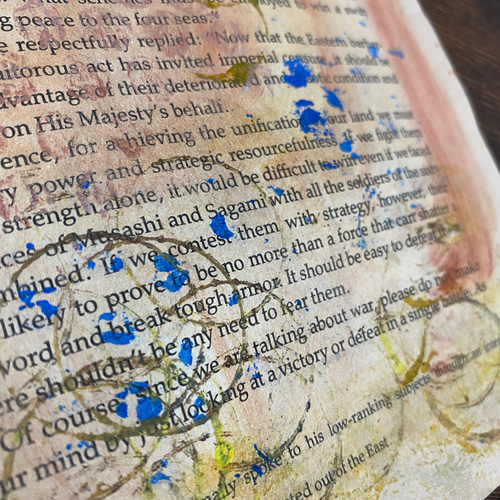 that schemes must be employed to win a swift
g peace to the four seas."
e respectfully replied: "Now that the Eastern
itorous act has invited imperial censure, it should be
dvantage of their deteriorated and condition and
on His Majesty's behalf.
ence, for achieving the unification your land, we must
ry power and strategic resourcefulness. If we fight them
strength alone, it would be difficult to win even if we faced
ces of Musashi and Sagami with all the soldiers of the
mbined. If we contest them with strategy, however, their
likely to prove to be no more than a force that can shatter a
word and break tough armor. It should be easy to defeat
ere shouldn't be any need to fear them.
Of course, since we are talking about war, please do not make
ur mind by just looking at a victory or defeat in a single battle. As
nally spoke to his low-ranking subjects through an
red out of the East